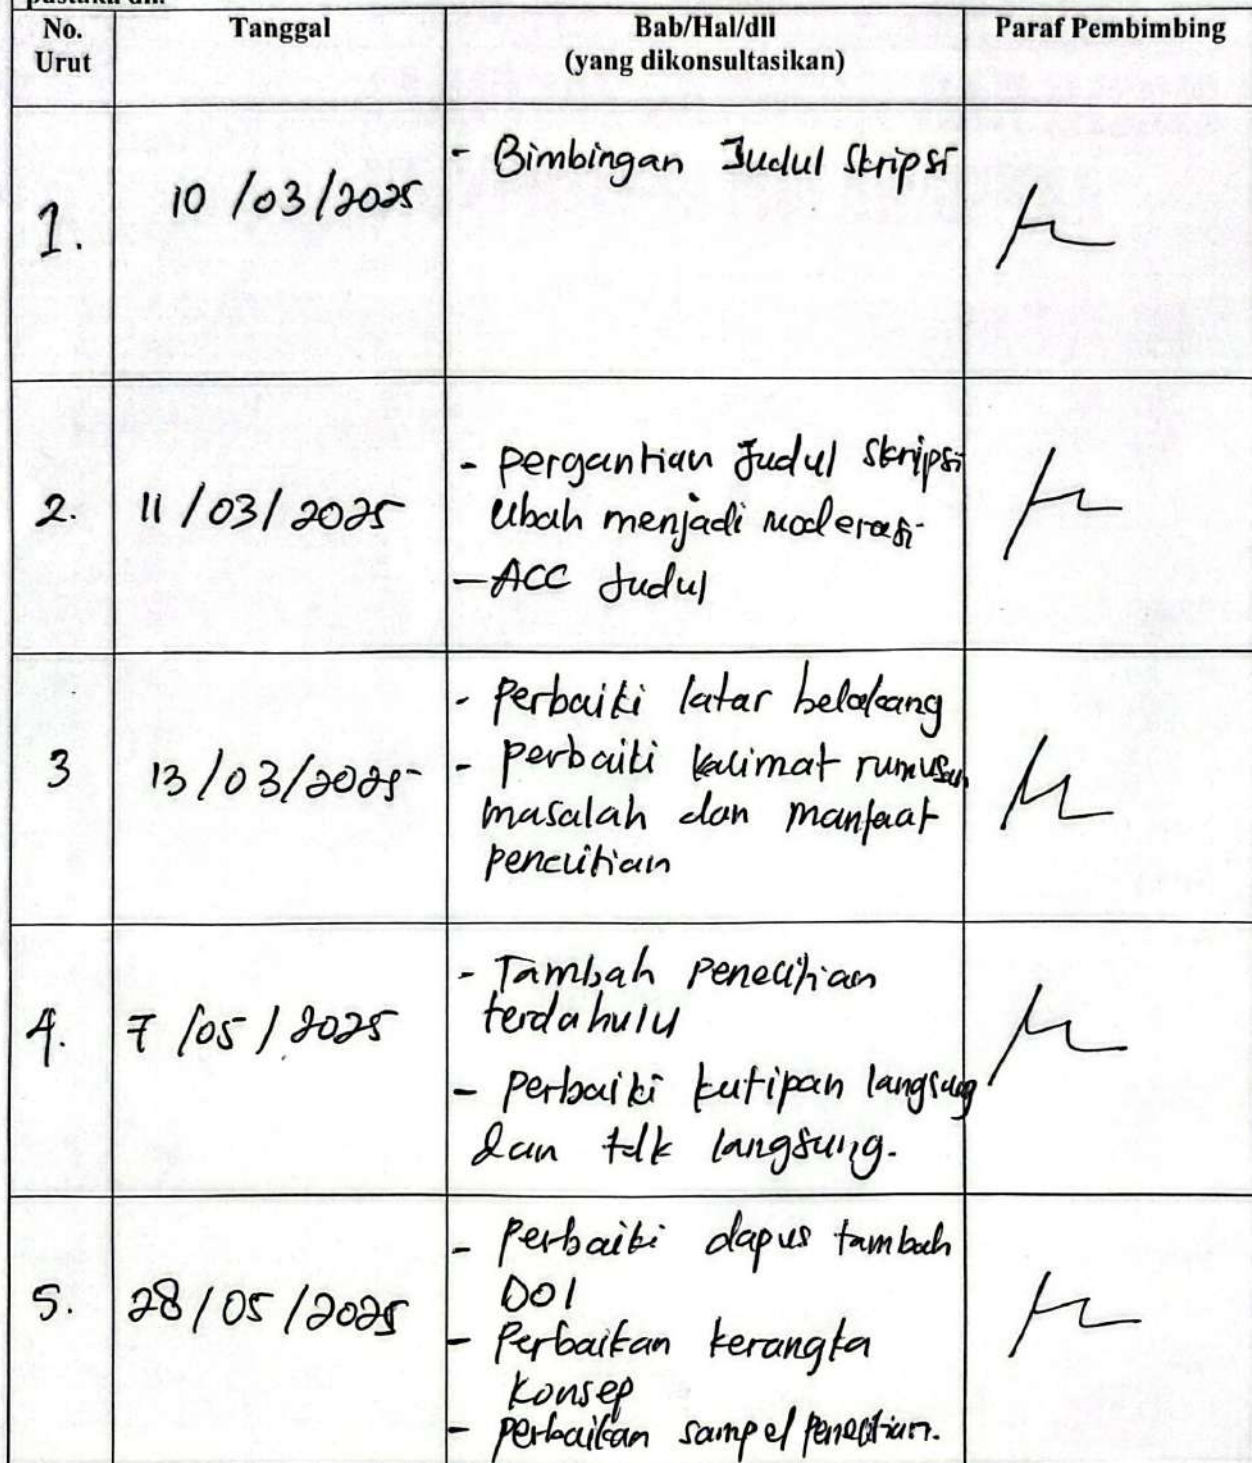 No. Urut
Tanggal
Bab/Hal/dll
(yang dikonsultasikan)
Paraf Pembimbing
1.
10/03/2025
- Bimbingan Judul Skripsi
2.
11/03/2025
- pergantian Judul skripsi
ubah menjadi moderasi
- ACC Judul
3
13/03/2025
- perbaiki latar belakang
- perbaiki kalimat rumusan
masalah dan manfaat
penelitian
4.
7/05/2025
- Tambah penelitian
terdahulu
- perbaiki kutipan langsung
dan tdk langsung.
5.
28/05/2025
- perbaiki dapus tambah
DOI
- Perbaikan kerangka
konsep
- perbaikan sampel penelitian.